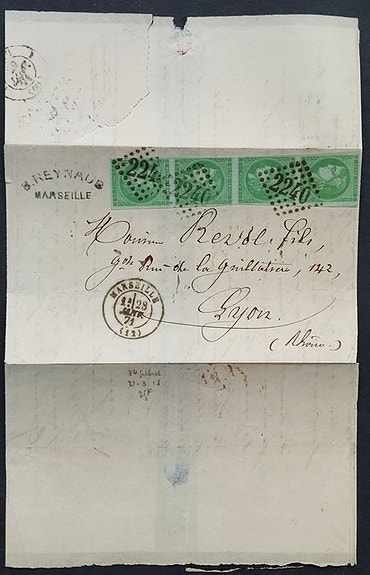 224
2240
2240
S. REYNAUD
MARSEILLE
Monsieur Revol fils,
Gde Rue de la Guillotière, 142,
Lyon
(Rhône)
MARSEILLE
1E 28
JANV.
71
(12)